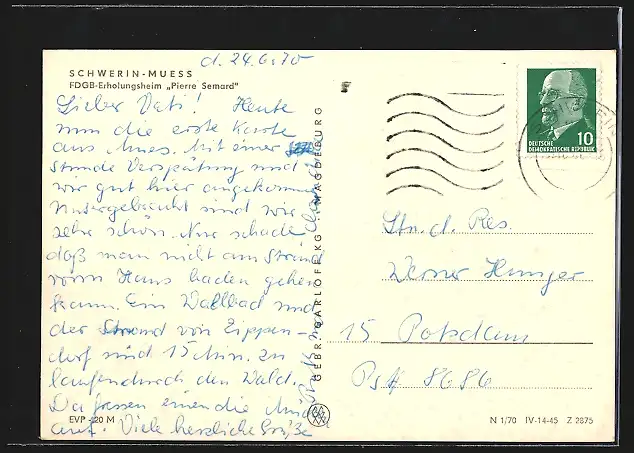 d. 24.6.70
SCHWERIN-MUESS
FDGB-Erholungsheim „Pierre Semard"
Lieber Vati! Heute
nun die erste Karte
aus Mues. Mit einer
Stunde Verspätung sind
wir gut hier angekommen
Untergebracht sind wir
sehr schön. Nur schade
daß man nicht am Strand
vorm Haus baden gehen
kann. Ein Waldbad und
der Strand von Zippen-
dorf sind 15 Min. zu
laufen durch den Wald.
Da fressen einen die
auf. Viele herzliche Grüße
EVP -,20 M
GEBR. GARLOFF KG MAGDEBURG
10
DEUTSCHE
DEMOKRATISCHE REPUBLIK
Stn. d. Res.
Werner Hunger
15 Potsdam
PSF 8686
N 1/70 IV-14-45 Z 2875